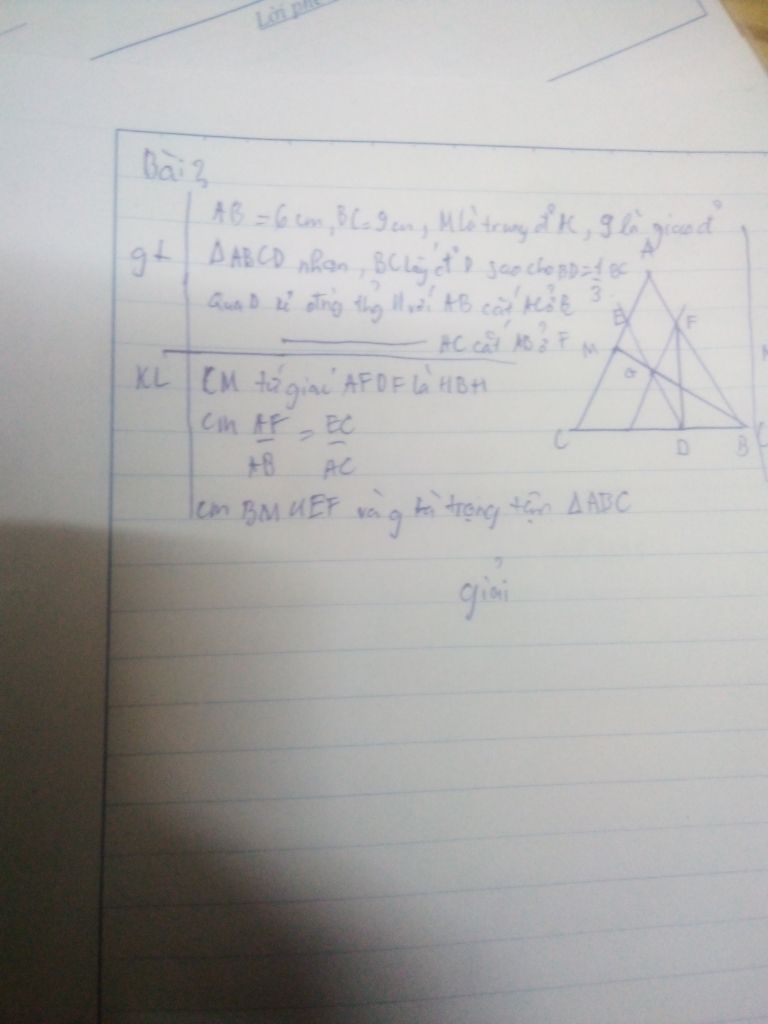 Lời phê
Bài 2
AB = 6 cm, BC = 9 cm, M là trung đ' AC, g là giao đ'
gt
ΔABCD nhọn, BC lấy đ' D sao cho BD = 1/3 BC
Qua D kẻ đ thg // với AB cắt AC ở E
AC cắt AB ở F
KL
CM tứ giác AFDF là HBH
cm AF/AB = EC/AC
cm BM // EF và g là trọng tâm ΔABC
giải
A
E
F
M
G
C
D
B